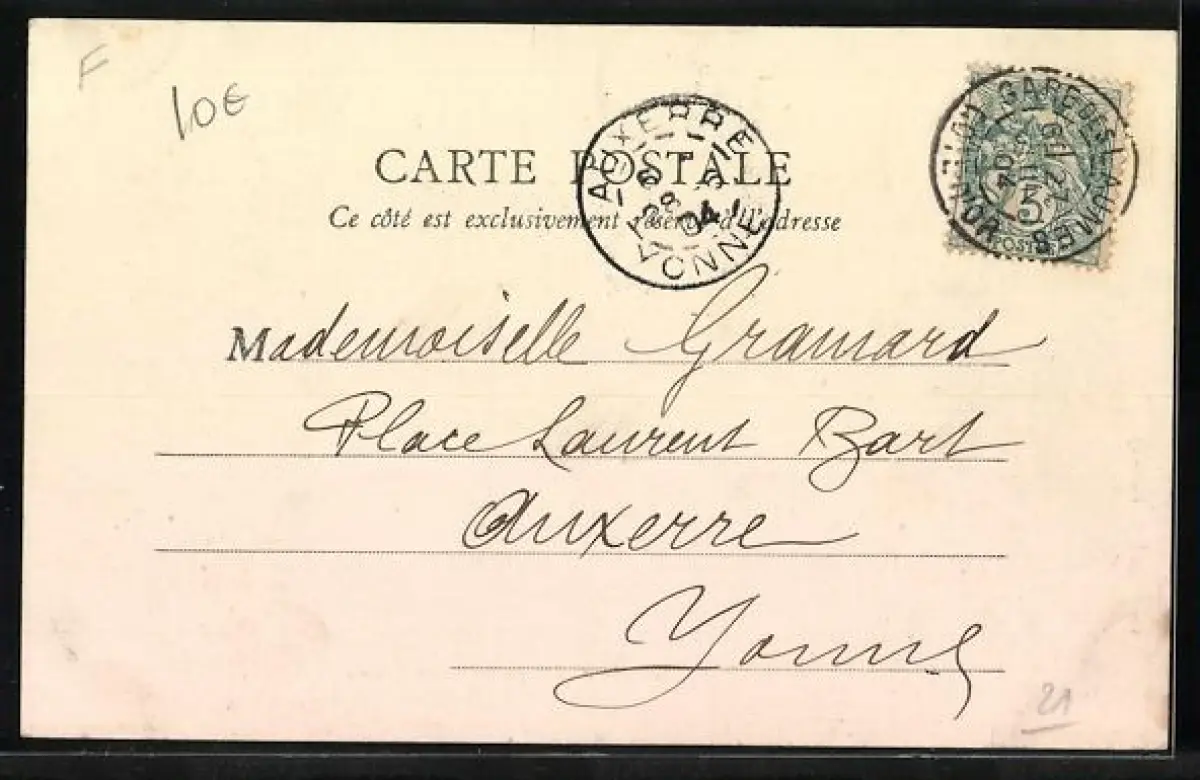 F
10€
CARTE POSTALE
Ce côté est exclusivement réservé à l'adresse
AUXERRE
YONNE
GARE DES LAUMES
COTE-D'OR
04
5
POSTES
Mademoiselle Gramard
Place Laurent Bart
Auxerre
Yonne
21